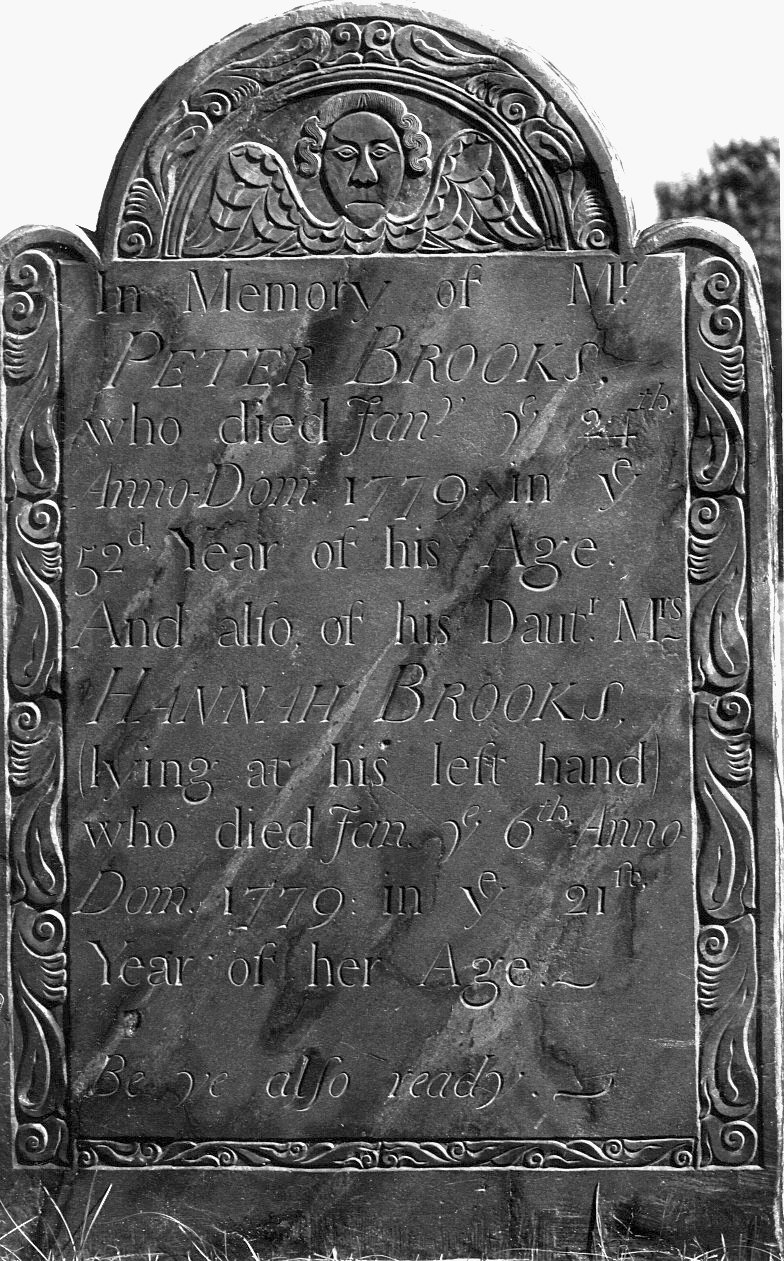 In Memory of Mr.
PETER BROOKS,
who died Janry. ye. 24th.
Anno-Dom. 1779. in ye
52d. Year of his Age.
And alſo, of his Dautr. Mrs
HANNAH BROOKS,
(lying at his left hand)
who died Jan. ye. 6th. Anno
Dom. 1779: in ye 21ſt.
Year of her Age.
Be ye alſo ready.